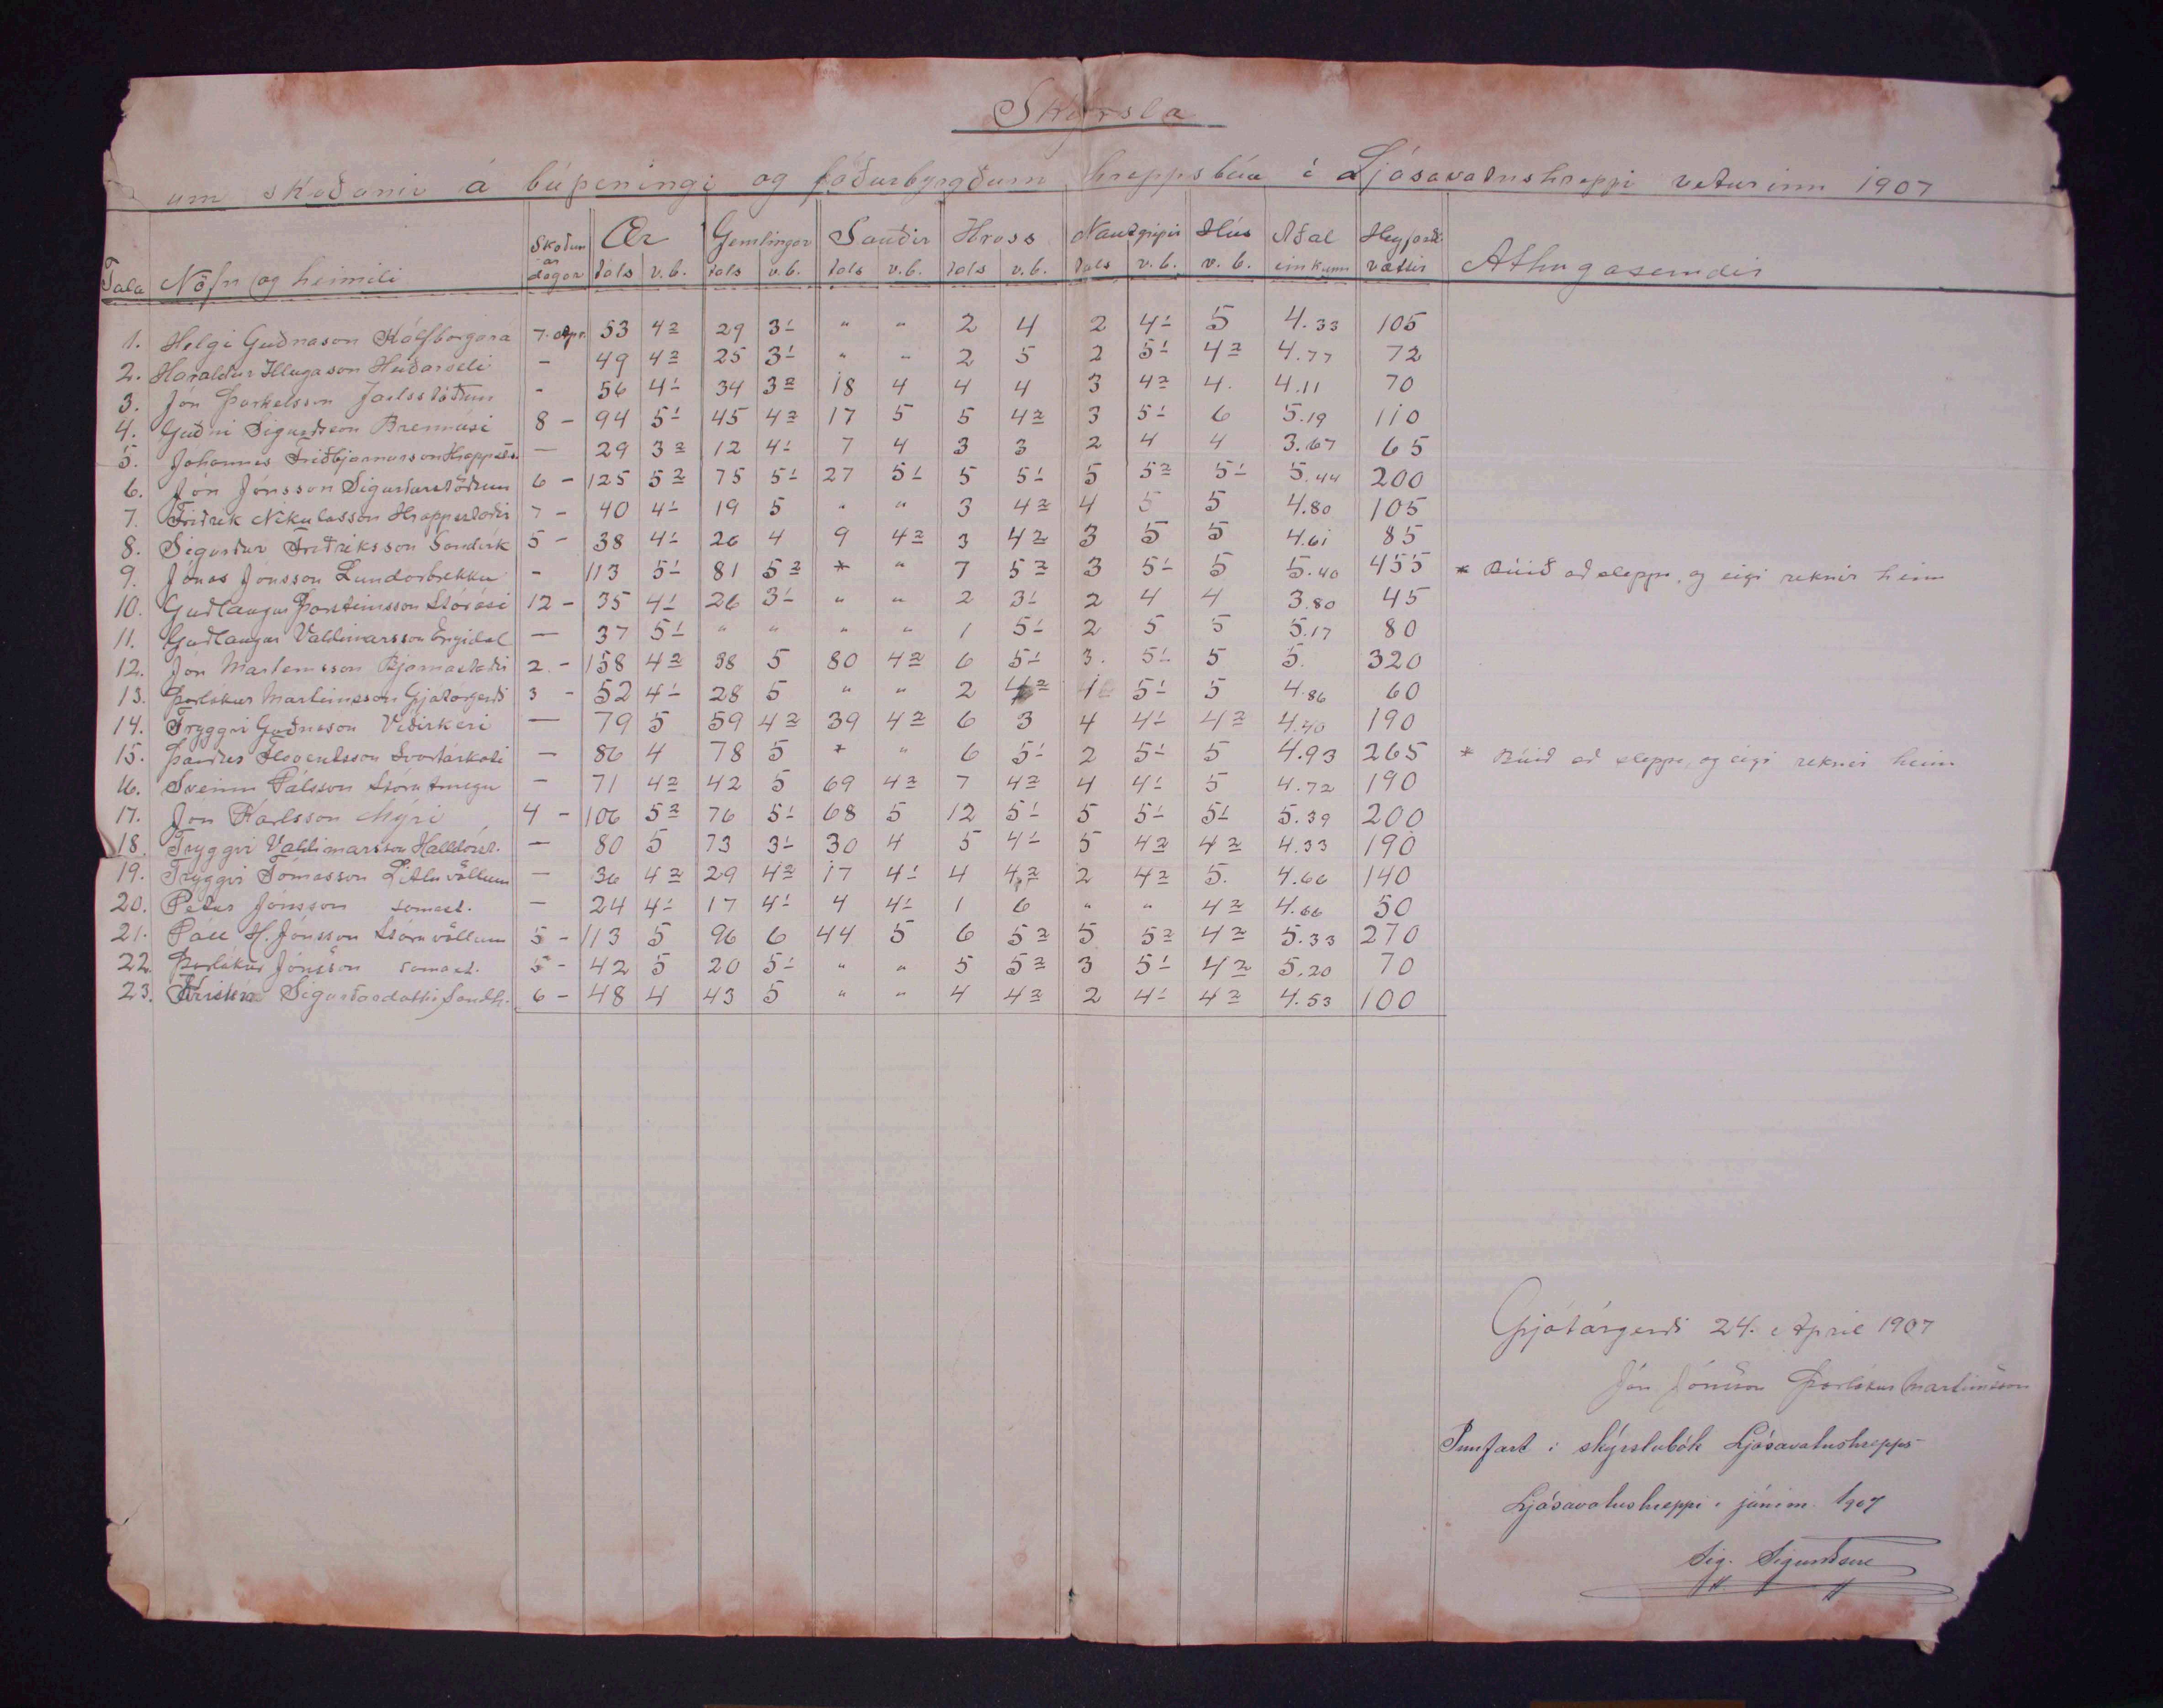 Skýrsla
um skoðanir á búpeningi og fóðurbyrgðum hreppsbúa í Ljósavatnshreppi veturinn 1907
Tala Nöfn og heimili Skoðunar dagar Ær Gemlingar Sauðir Hross Nautgripir Hús Aðal einkunn Heyforði vættir Athugasemdir
tals v.b. tals v.b. tals v.b. tals v.b. tals v.b. v.b.
1. Helgi Guðnason Kálfborgará 7. apr. 53 4 2 29 3 1 " " 2 4 2 4 1 5 4.33 105
2. Haraldur Illugason Heiðarseli - 49 4 2 25 3 1 " " 2 5 2 5 1 4 2 4.77 72
3. Jón Þorkelsson Jarlsstöðum - 56 4 1 34 3 2 18 4 4 4 3 4 2 4. 4.11 70
4. Guðni Sigurðsson Brennási 8 - 94 5 1 45 4 2 17 5 5 4 2 3 5 1 6 5.19 110
5. Jóhannes Friðbjarnarson Hrappsst. — 29 3 2 12 4 1 7 4 3 3 2 4 4 3.67 65
6. Jón Jónsson Sigurðarstöðum 6 - 125 5 2 75 5 1 27 5 1 5 5 1 5 5 2 5 1 5.44 200
7. Friðrik Nikulasson Hrappsstaðir 7 - 40 4 1 19 5 " " 3 4 2 4 5 5 4.80 105
8. Sigurður Friðriksson Sandvík 5 - 38 4 1 26 4 9 4 2 3 4 2 3 5 5 4.61 85
9. Jónas Jónsson Lundarbrekku - 113 5 1 81 5 2 * " 7 5 2 3 5 1 5 5.40 455 * Búið að sleppa, og eigi reknir heim
10. Guðlaugur Þorsteinsson Stórási 12 - 35 4 1 26 3 1 " " 2 3 1 2 4 4 3.80 45
11. Guðlaugur Valdimarsson Engidal — 37 5 1 " " " " 1 5 1 2 5 5 5.17 80
12. Jón Marteinsson Bjarnastaðir 2. - 158 4 2 98 5 80 4 2 6 5 1 3. 5 1 5 5. 320
13. Þorlákur Marteinsson Gjátárgerði 3 - 52 4 1 28 5 " " 2 4 2 1 5 1 5 4.86 60
14. Tryggvi Guðnason Víðirkeri — 79 5 59 4 2 39 4 2 6 3 4 4 1 4 2 4.40 190
15. Þórður Flóventsson Svartárkoti — 86 4 78 5 * " 6 5 1 2 5 1 5 4.93 265 * Búið að sleppa, og eigi reknir heim
16. Sveinn Pálsson Stórutungu - 71 4 2 42 5 69 4 2 7 4 2 4 4 1 5 4.72 190
17. Jón Karlsson Mýri 4 - 106 5 2 76 5 1 68 5 12 5 1 5 5 1 5 1 5.39 200
18. Tryggvi Valdimarsson Halldórst. — 80 5 73 3 1 30 4 5 4 1 5 4 2 4 2 4.33 190
19. Tryggvi Tómasson Litluvöllum — 36 4 2 29 4 2 17 4 1 4 4 2 2 4 2 5. 4.66 140
20. Petur Jónsson samast. — 24 4 1 17 4 1 4 4 1 1 6 " " 4 2 4.66 50
21. Páll H. Jónsson Stóruvöllum 5 - 113 5 96 6 44 5 6 5 2 5 5 2 4 2 5.33 270
22. Þorlákur Jónsson samast. 5 - 42 5 20 5 1 " " 5 5 2 3 5 1 4 2 5.20 70
23. Kristín Sigurðardóttir Sandh. 6 - 48 4 43 5 " " 4 4 2 2 4 1 4 2 4.53 100
Gjátárgerði 24. Apríl 1907
Jón Jónsson Þorlákur Marteinsson
Innfært í skýrslubók Ljósavatnshrepps
Ljósavatnshreppi í júním. 1907
Sig. Sigurðsson